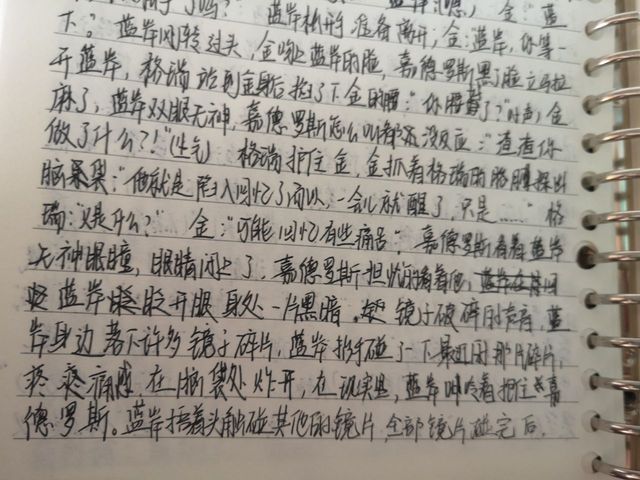 下。" 蓝岸刚转过头,金吻上蓝岸的脸,嘉德罗斯黑了脸立马拉
开蓝岸,格瑞站到金身后掐了下金的腰:"你腰着了?"
麻了,蓝岸双眼无神,嘉德罗斯怎么叫都没反应:"渣渣你
做了什么?!"(生气) 格瑞护住金,金抓着格瑞的胳膊探出
脑袋:"他就是陷入回忆了而以,一会儿就醒了,只是……" 格
瑞:"又是什么?" 金:"可能回忆有些痛苦" 嘉德罗斯看着蓝岸
无神眼瞳,眼睛闭上了,嘉德罗斯担忧的看着他,
蓝岸睁开眼身处一片黑暗。镜子破碎的声音,蓝
岸身边落下许多镜子碎片,蓝岸伸手碰了一下最近的那片碎片,
疼痛感在脑袋处炸开,在现实里,蓝岸呻吟着抱住嘉
德罗斯。蓝岸捂着头触碰其他的镜片,全部镜片碰完后,